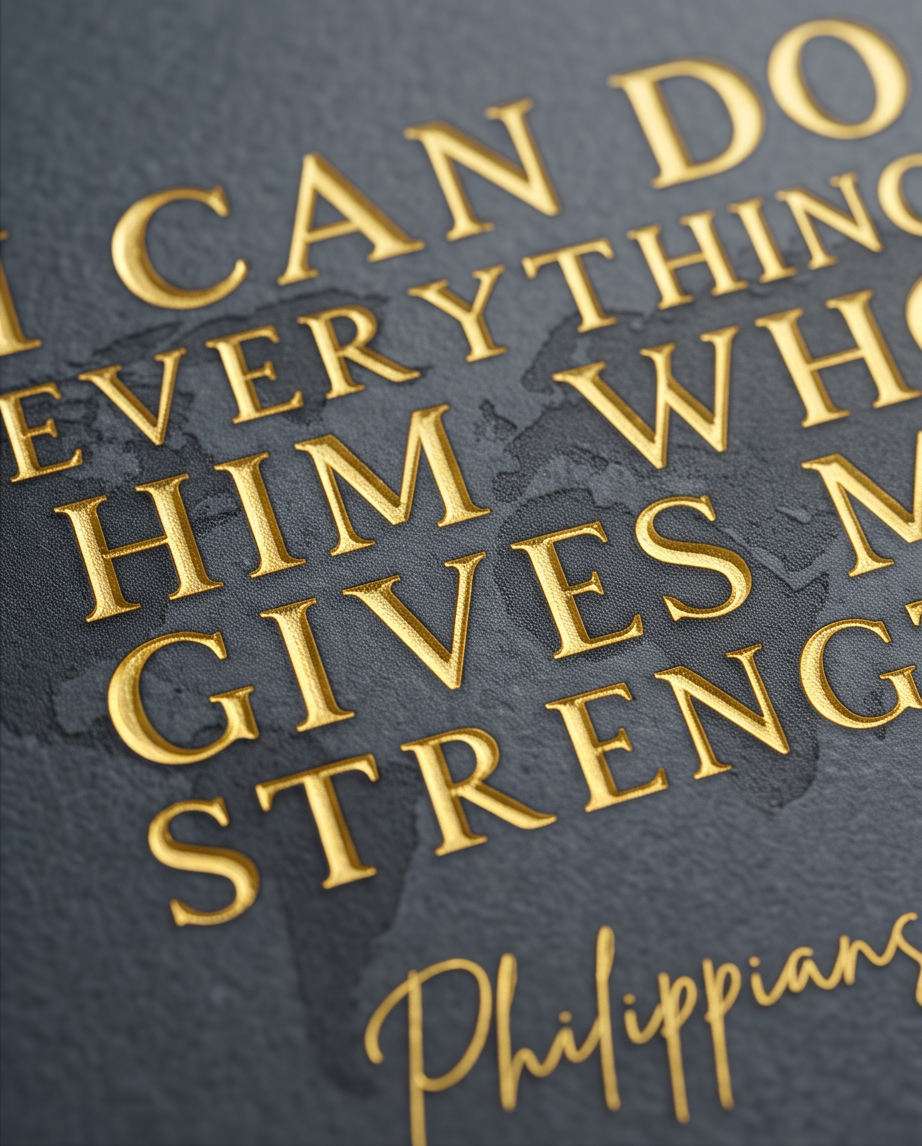 I CAN DO
EVERYTHING
HIM WHO
GIVES M
STRENGT
Philippians